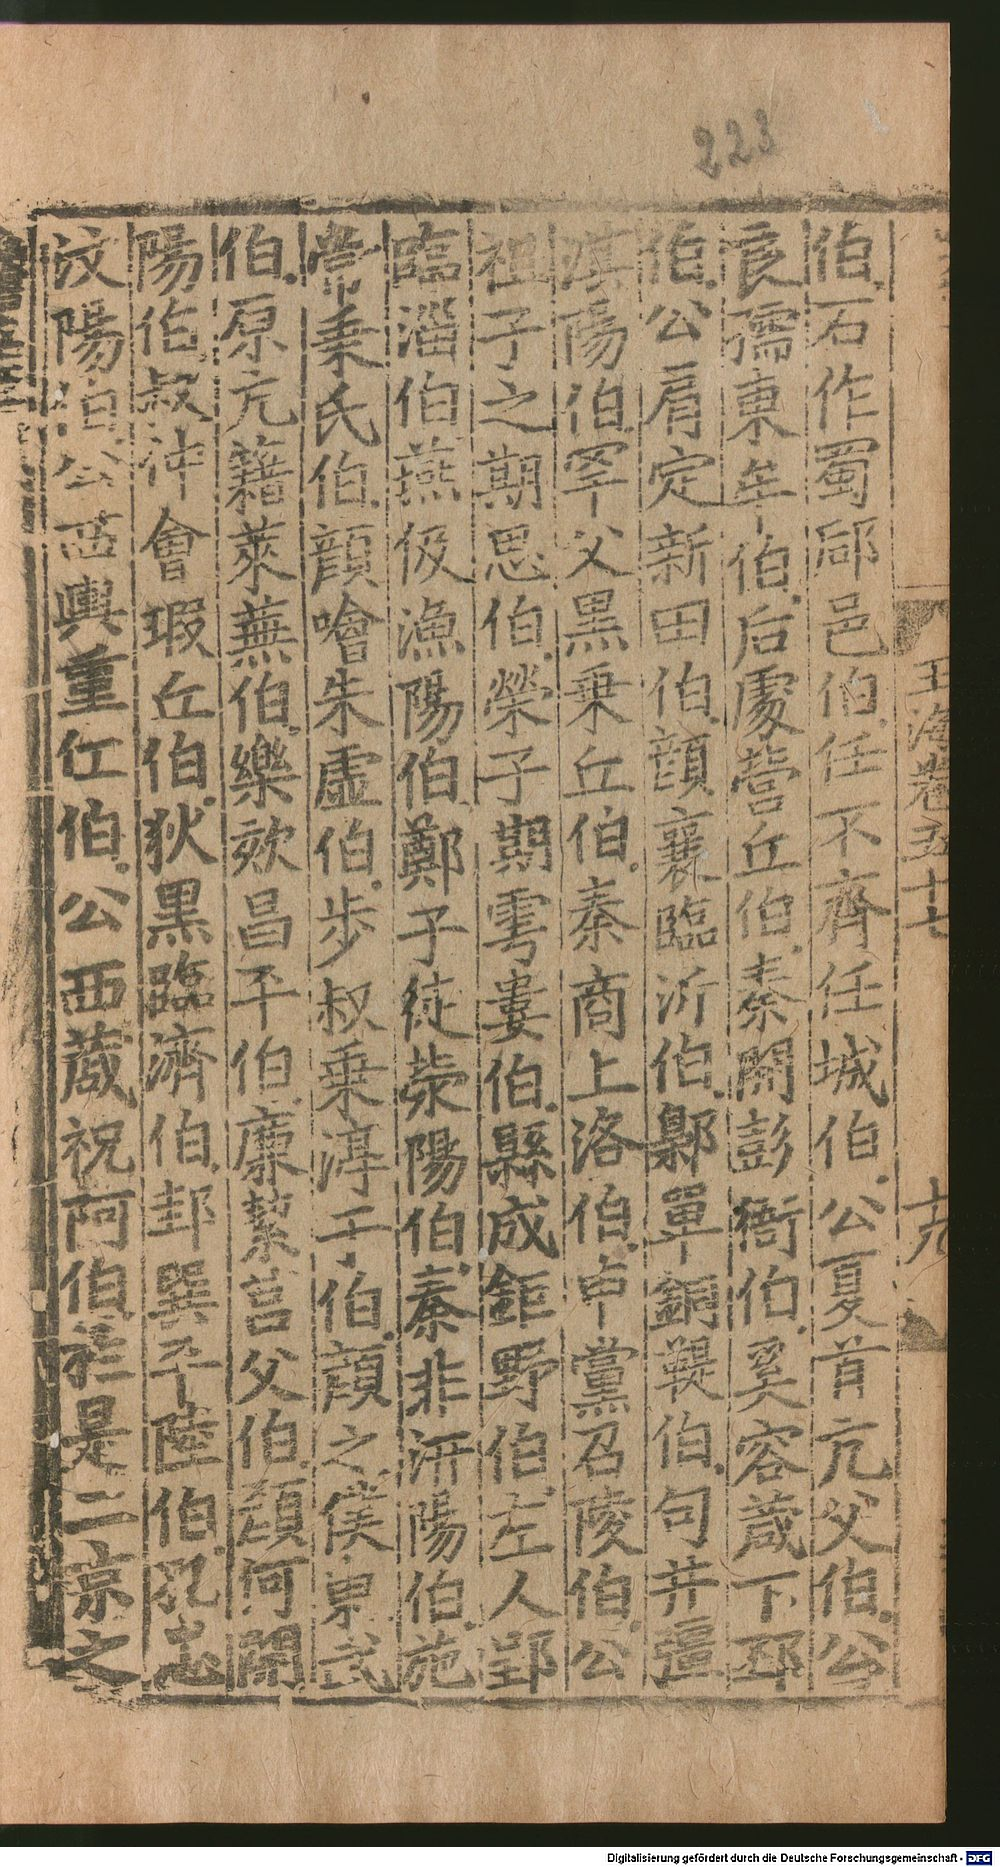 223
伯石作蜀郈邑伯任不齊任城伯公夏首亢父伯公
良孺東牟伯后處營丘伯秦開彭衙伯奚容蒧下邳
伯公肩定新田伯顔襄臨沂伯鄡單銅鞮伯句井疆
淇陽伯罕父黑乗丘伯秦商上洛伯申黨召陵伯公
祖子之期思伯榮子期雩婁伯縣成鉅野伯左人郢
臨淄伯燕伋漁陽伯鄭子徒滎陽伯秦非汧陽伯施
常乗氏伯顔噲朱虚伯步叔乗淳于伯顔之僕東武
伯原亢籍萊蕪伯樂欬昌平伯廉絜莒父伯顔何開
陽伯叔仲會瑕丘伯狄黒臨濟伯邽巽平陸伯孔忠
汶陽伯公西輿重仁伯公西蒧祝阿伯於是二京之
玉海卷五十七
十九
Digitalisierung gefördert durch die Deutsche Forschungsgemeinschaft - DFG